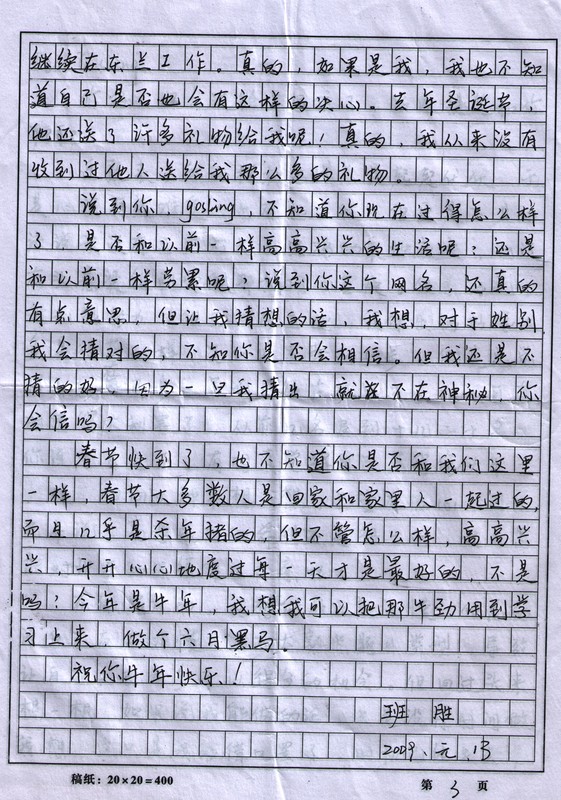 继续在东兰工作。真的，如果是我，我也不知
道自己是否也会有这样的决心。去年圣诞节，
他还送了许多礼物给我呢！真的，我从来没有
收到过他人送给我那么多的礼物。
说到你，gosling，不知道你现在过得怎么样
了，是否和以前一样高高兴兴的生活呢？还是
和以前一样劳累呢？说到你这个网名，还真的
有点意思，但让我猜想的话，我想，对于姓别
我会猜对的，不知你是否会相信。但我还是不
猜的好，因为一旦我猜出，就不在神秘，你
会信吗？
春节快到了，也不知道你是否和我们这里
一样，春节大多数人是回家和家里人一起过的，
而且几乎是杀年猪的，但不管怎么样，高高兴
兴，开开心心地度过每一天才是最好的，不是
吗？今年是牛年，我想我可以把那牛劲用到学
习上来，做个六月黑马。
祝你牛年快乐！
班胜
2009、元、13
稿纸：20×20=400
第 3 页